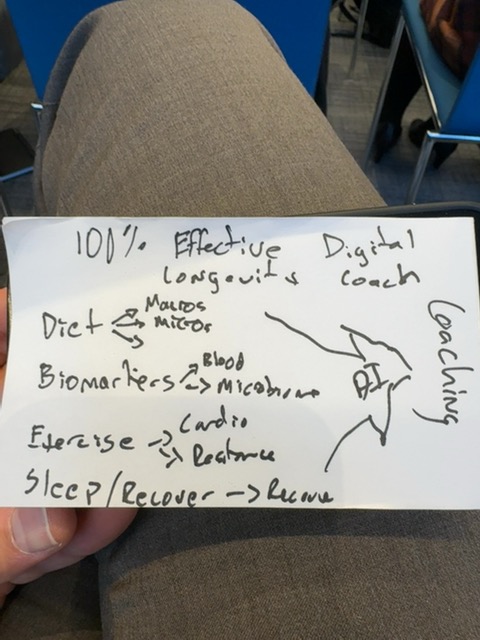 100% Effective Digital
Longevity Coach
Diet
Macros
Micros
Biomarkers
Blood
Microbiome
Exercise
Cardio
Sleep/Recover
AI
Coaching